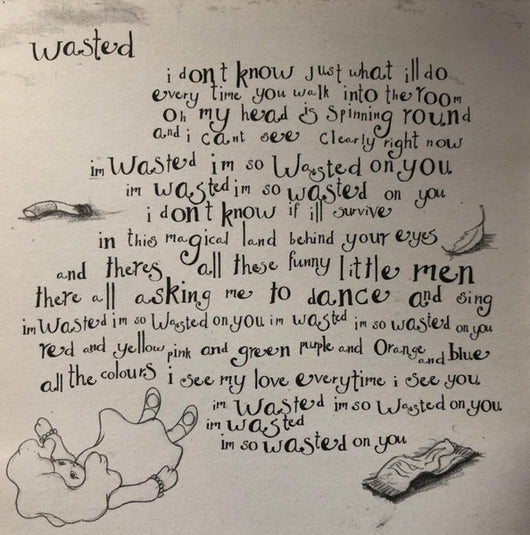 wasted
i don't know just what ill do
every time you walk into the room
oh my head is spinning round
and i cant see clearly right now
im wasted im so wasted on you
im wasted im so wasted on you
i don't know if ill survive
in this magical land behind your eyes
and theres all these funny little men
there all asking me to dance and sing
im wasted im so wasted on you im wasted im so wasted on you
red and yellow pink and green purple and orange and blue
all the colours i see my love everytime i see you
im wasted im so wasted on you
im wasted
im so wasted on you